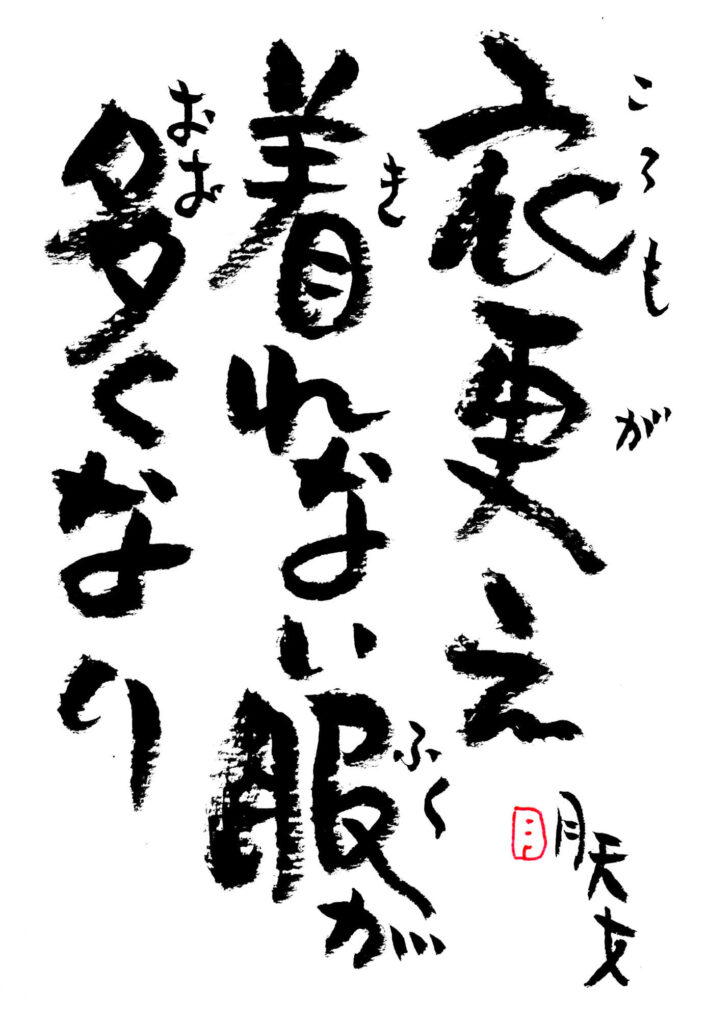 ころもが
衣更え
き ふく
着れない服が
おお
多くなり